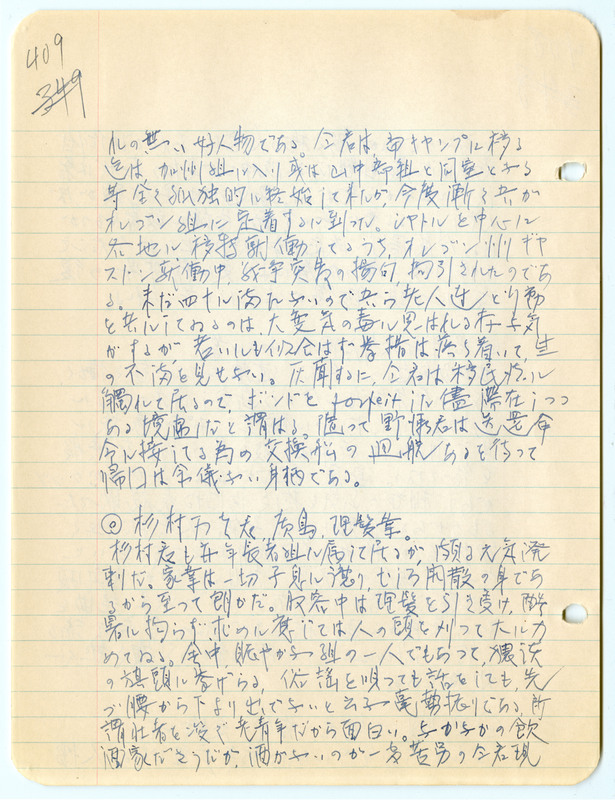 409
349
れの無い好人物である。全君は当キャンプに移る
迄は、加州組に入り或は山中部組と同室となる
等全く孤独的に終始して来たが、今度漸く共が
オレゴン組に定着するに到った。シャトルを中心に
各地に移轉勞働してるうち、オレゴン州ギヤ
ストン就働中、戦争突発の揚句、拘引されたのであ
る。未だ四十に満たないので共ら老人連と行動
を共にしてゐるのは、大変気の毒に思はれる様な気
がするが、若いにも似合はず挙措は落ち着いて、生
の不満を見せない。仄聞するに、全君は移民法に
觸れて居るので、ボンドを forfeit した儘滞在しつつ
ある境遇だと謂はる。随って野 君は 命
令に接してる為の交換船の廻航あるを待って
帰国は余儀ない身柄である。
◎ 杉村 、廣島、理髪業。
杉村君も年長者組に属して居るが頗る元気溌
剌だ。家業は一切子息に譲り、むしろ閑散の身であ
るから至って朗かだ。収容中は理髪を引き受け、酷
暑に拘らず、求めに應じては人の頭を刈って大に力
めてゐる。舎中、賑やかな組の一人でもあつて、猥談
の旗頭に挙げらる。俗謡を唄っても話をしても、先
づ腰から下より出でないと云ふ 振りである。所
謂壮者を凌ぐ老青年だから面白い。なかなかの飲
酒家ださうだが、酒がないのが一番苦労の全君現